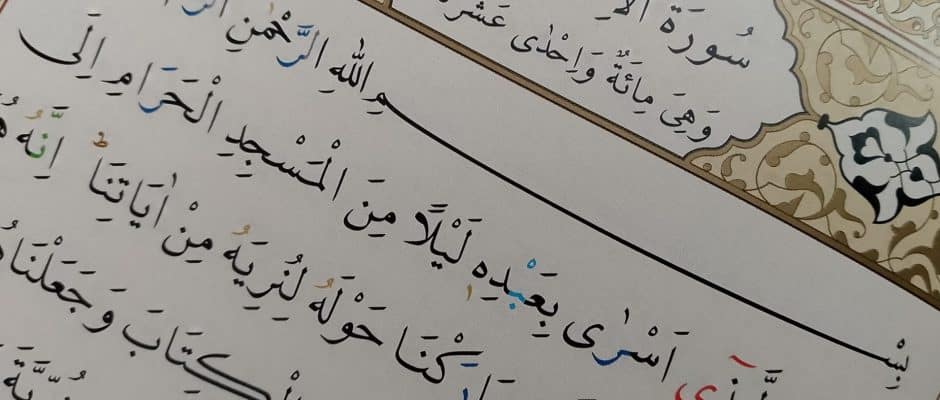 سُورَةُ
وَهِىَ مِائَةٌ وَاِحْدٰى عَشْرَ
بِسْمِ اللّٰهِ الرَّحْمٰنِ
الَّذٖٓى اَسْرٰى بِعَبْدِهٖ لَيْلًا مِنَ الْمَسْجِدِ الْحَرَامِ اِلَى
بَارَكْنَا حَوْلَهُ لِنُرِيَهُ مِنْ اٰيَاتِنَاۜ اِنَّهُ
الْكِتَابَ وَجَعَلْنَاهُ